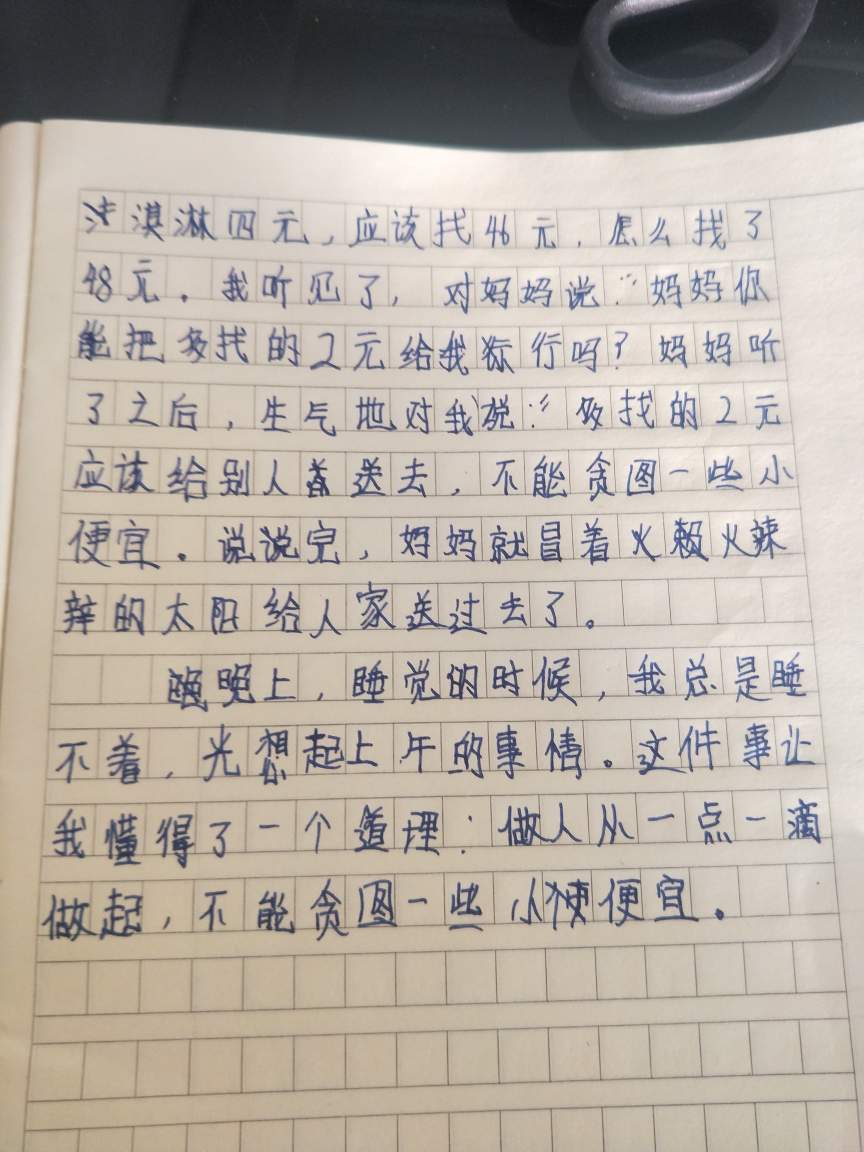 淇淋四元，应该找46元，怎么找了
48元。我听见了，对妈妈说：“妈妈你
能把多找的2元给我 行吗？妈妈听
了之后，生气地对我说：“多找的2元
应该给别人 送去，不能贪图一些小
便宜。说说完，妈妈就冒着火 火辣
辣的太阳给人家送过去了。
晚上，睡觉的时候，我总是睡
不着，光想起上午的事情。这件事让
我懂得了一个道理：做人从一点一滴
做起，不能贪图一些小便宜。